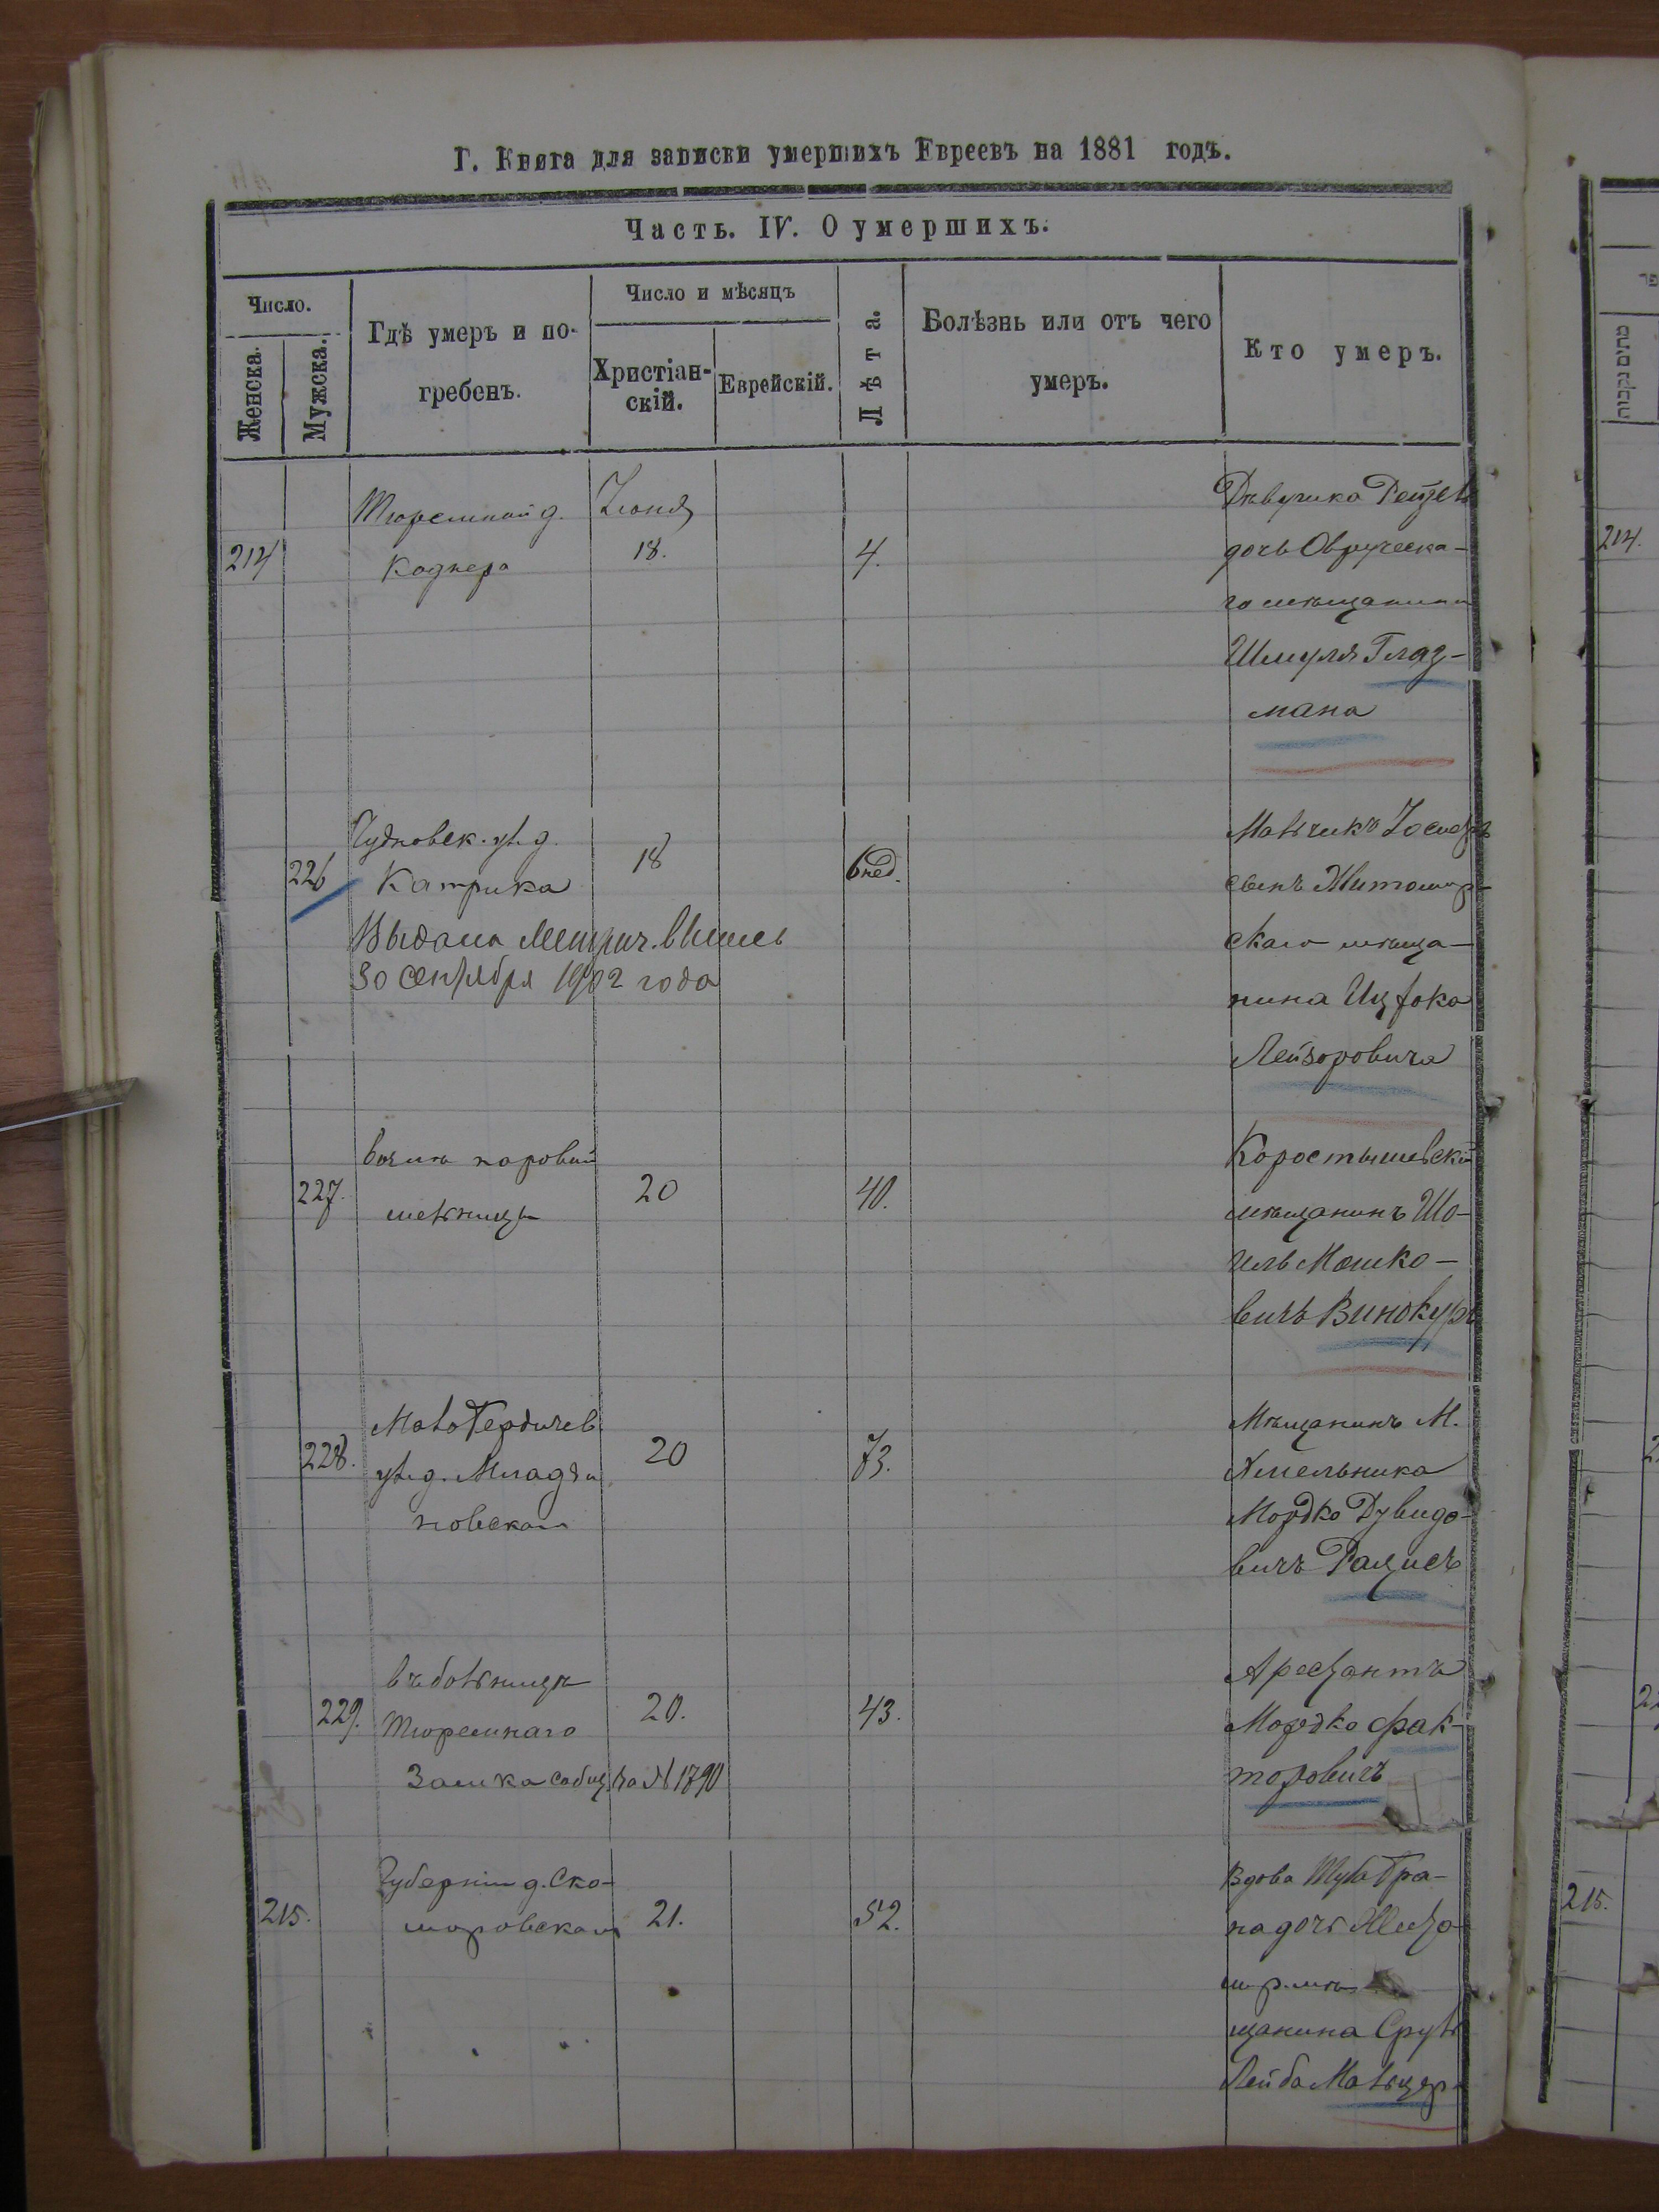 Г. Книга для записки умершихъ Евреевъ на 1881 годъ.
Часть. IV. О умершихъ.
Число.
Женска.
Мужска.
Гдѣ умеръ и по-
гребенъ.
Число и мѣсяцъ
Христіан-
скій.
Еврейскій.
Лѣта.
Болѣзнь или отъ чего
умеръ.
Кто умеръ.
214
Тюремной д.
Коднера
Іюня
18.
4.
Дѣвушка Рейзель
дочь Овручска-
го мѣщанина
Шмуля Глаз-
мана
214.
226
Чудновск. ул. д.
Катрика
18
6 нед.
Выдана Метрич. выпись
30 сентября 1902 года
Мальчикъ Іосифъ
сынъ Житомір-
скаго мѣща-
нина Ицхока
Лейзоровича
227.
паровой
мельницы
20
40.
Коростышевскій
мѣщанинъ Шо-
Мошко-
вичъ Винокуръ
228.
Мало Бердичев.
ул. д.
новской
20
73.
Мѣщанинъ М.
Хмельника
Мордко Дувидо-
вичъ
229.
въ больницѣ
Тюремнаго
Замка сообщ. за № 1790
20.
43.
Арестантъ
Мордко Фак-
торовичъ
215.
Губерніи д. Ско-
моровской
21.
52.
Вдова
на дочь Жито-
мір. мѣ-
щанина Сруль
Лейба Мальцер-
215.